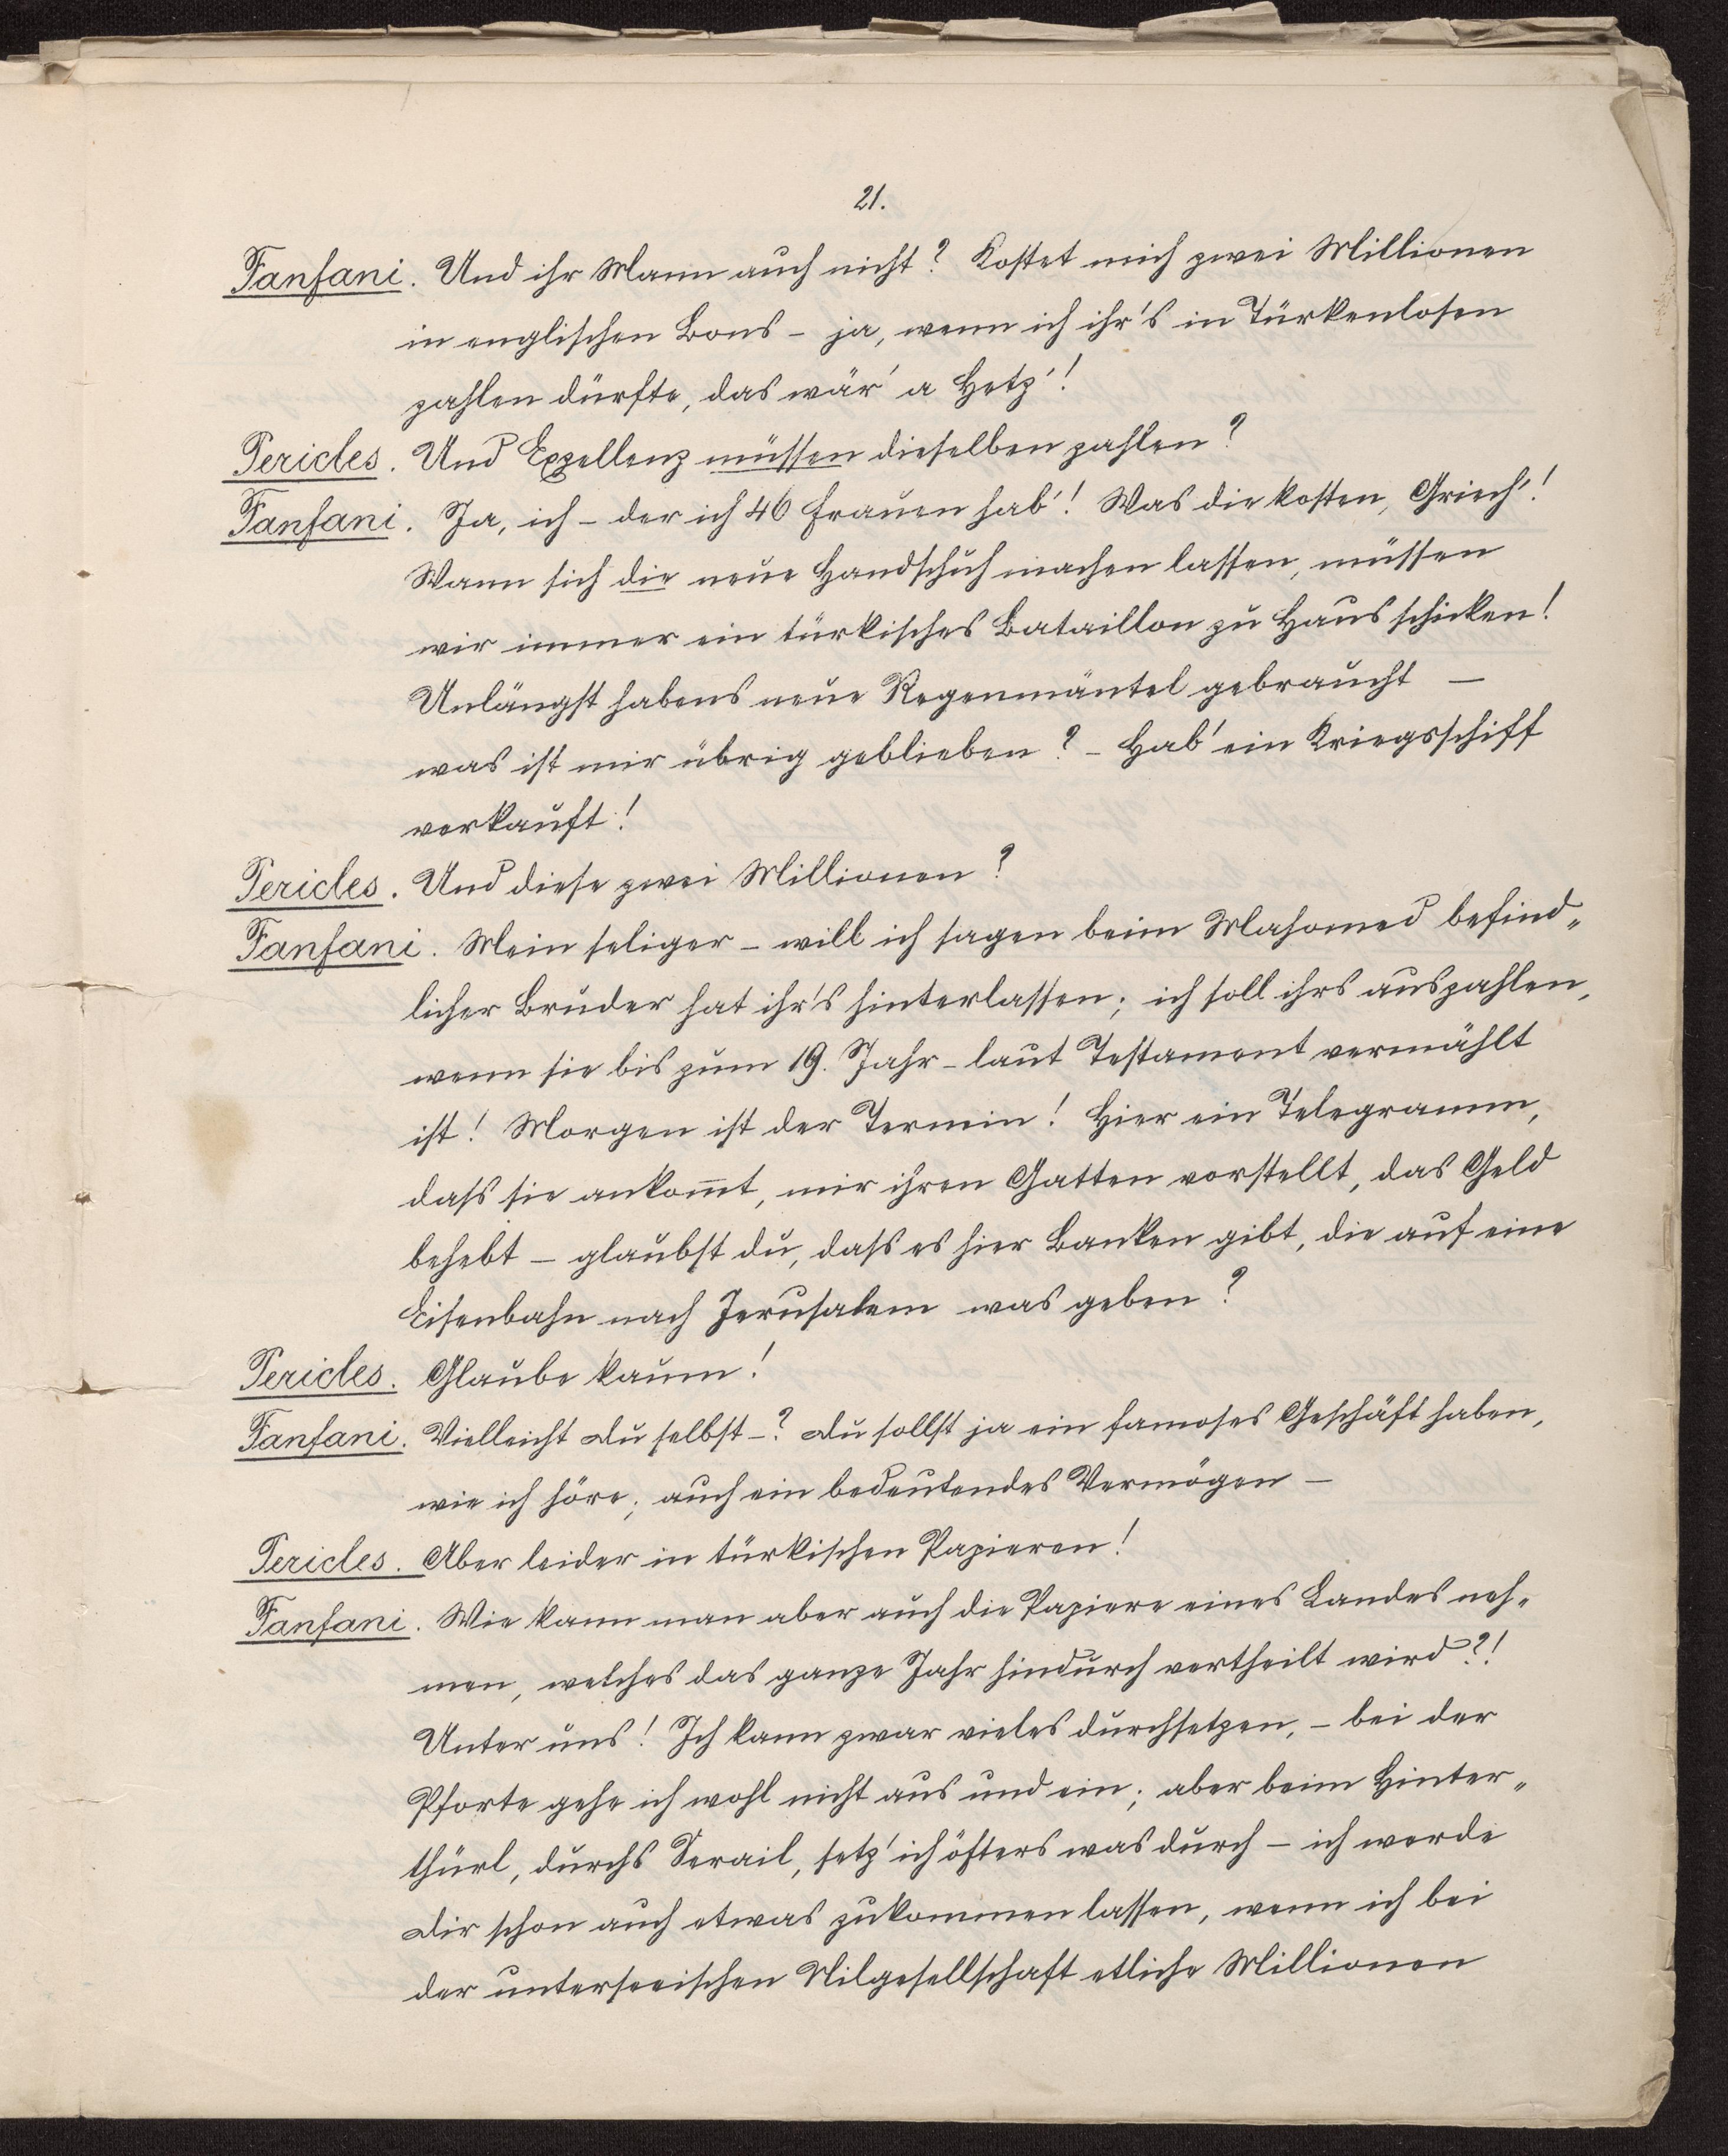 21.
Fanfani. Und ihr Mann auch nicht? Kostet mich zwei Millionen
in englischen Bons – ja, wenn ich ihr's in Türkenlosen
zahlen dürfte, das wär' a Hetz'!
Pericles. Und Exzellenz müssen dieselben zahlen?
Fanfani. Ja, ich – der ich 46 Frauen hab'! Was die kosten, Griech'!
Wann sich die neue Handschuh machen lassen, müssen
wir immer ein türkisches Bataillon zu Haus schicken!
Unlängst habens neue Regenmäntel gebraucht –
was ist mir übrig geblieben? – Hab' ein Kriegsschiff
verkauft!
Pericles. Und diese zwei Millionen?
Fanfani. Mein seliger – will ich sagen beim Mahomed befind„
licher Bruder hat ihr's hinterlassen; ich soll ihrs auszahlen,
wenn sie bis zum 19. Jahr – laut Testament vermählt
ist! Morgen ist der Termin! Hier ein Telegramm,
dass sie ankom̅t, mir ihren Gatten vorstellt, das Geld
behebt – glaubst du, dass es hier Banken gibt, die auf eine
Eisenbahn nach Jerusalem was geben?
Pericles. Glaube kaum!
Fanfani. Vielleicht du selbst –? du sollst ja ein famoses Geschäft haben,
wie ich höre; auch ein bedeutendes Vermögen –
Pericles. Aber leider in türkischen Papieren!
Fanfani. Wie kann man aber auch die Papiere eines Landes neh„
men, welches das ganze Jahr hindurch vertheilt wird?!
Unter uns! Ich kann zwar vieles durchsetzen, – bei der
Pforte gehe ich wohl nicht aus und ein; aber beim Hinter„
thürl, durchs Serail, setz' ich öfters was durch – ich werde
dir schon auch etwas zukommen lassen, wenn ich bei
der unterseeischen Nilgesellschaft etliche Millionen